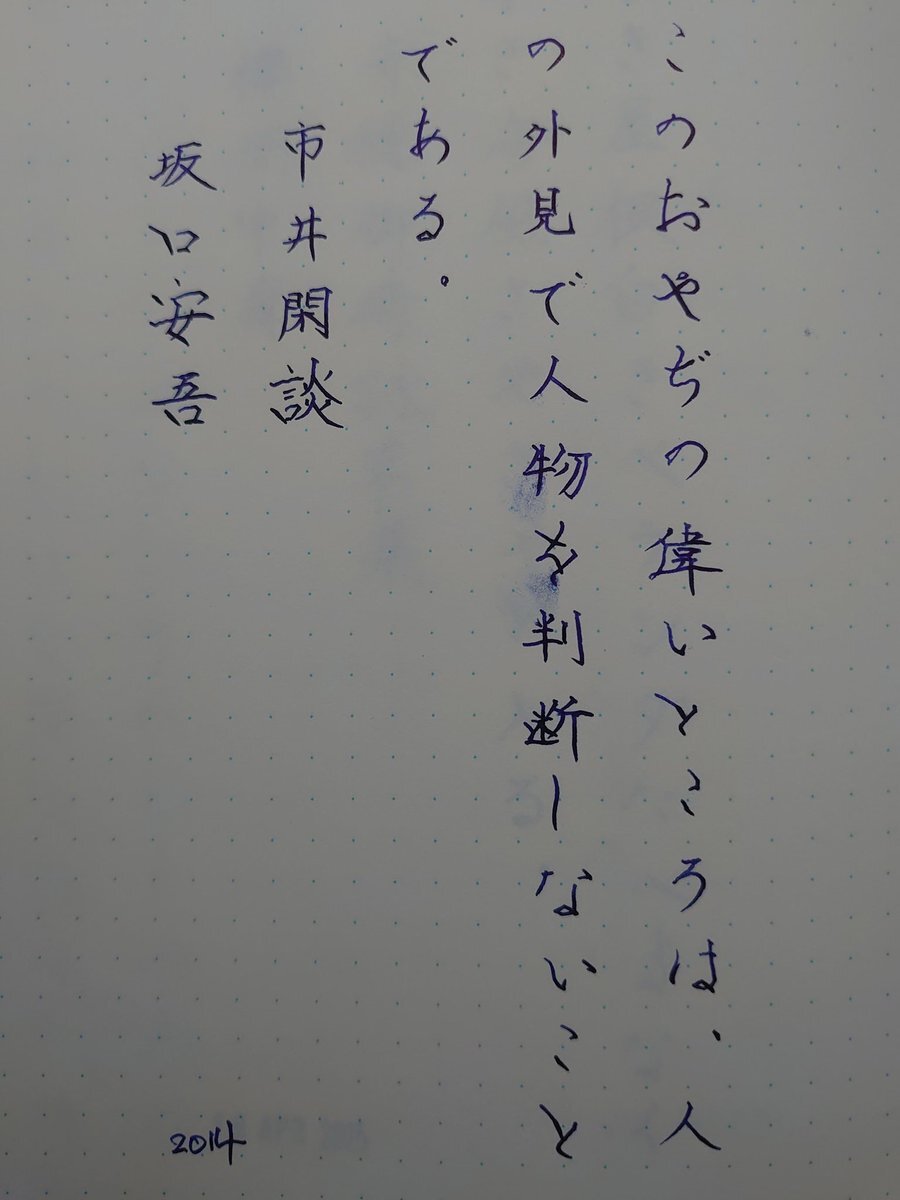 このおやぢの偉いところは、人
の外見で人物を判断しないこと
である。
市井閑談
坂口安吾
2014